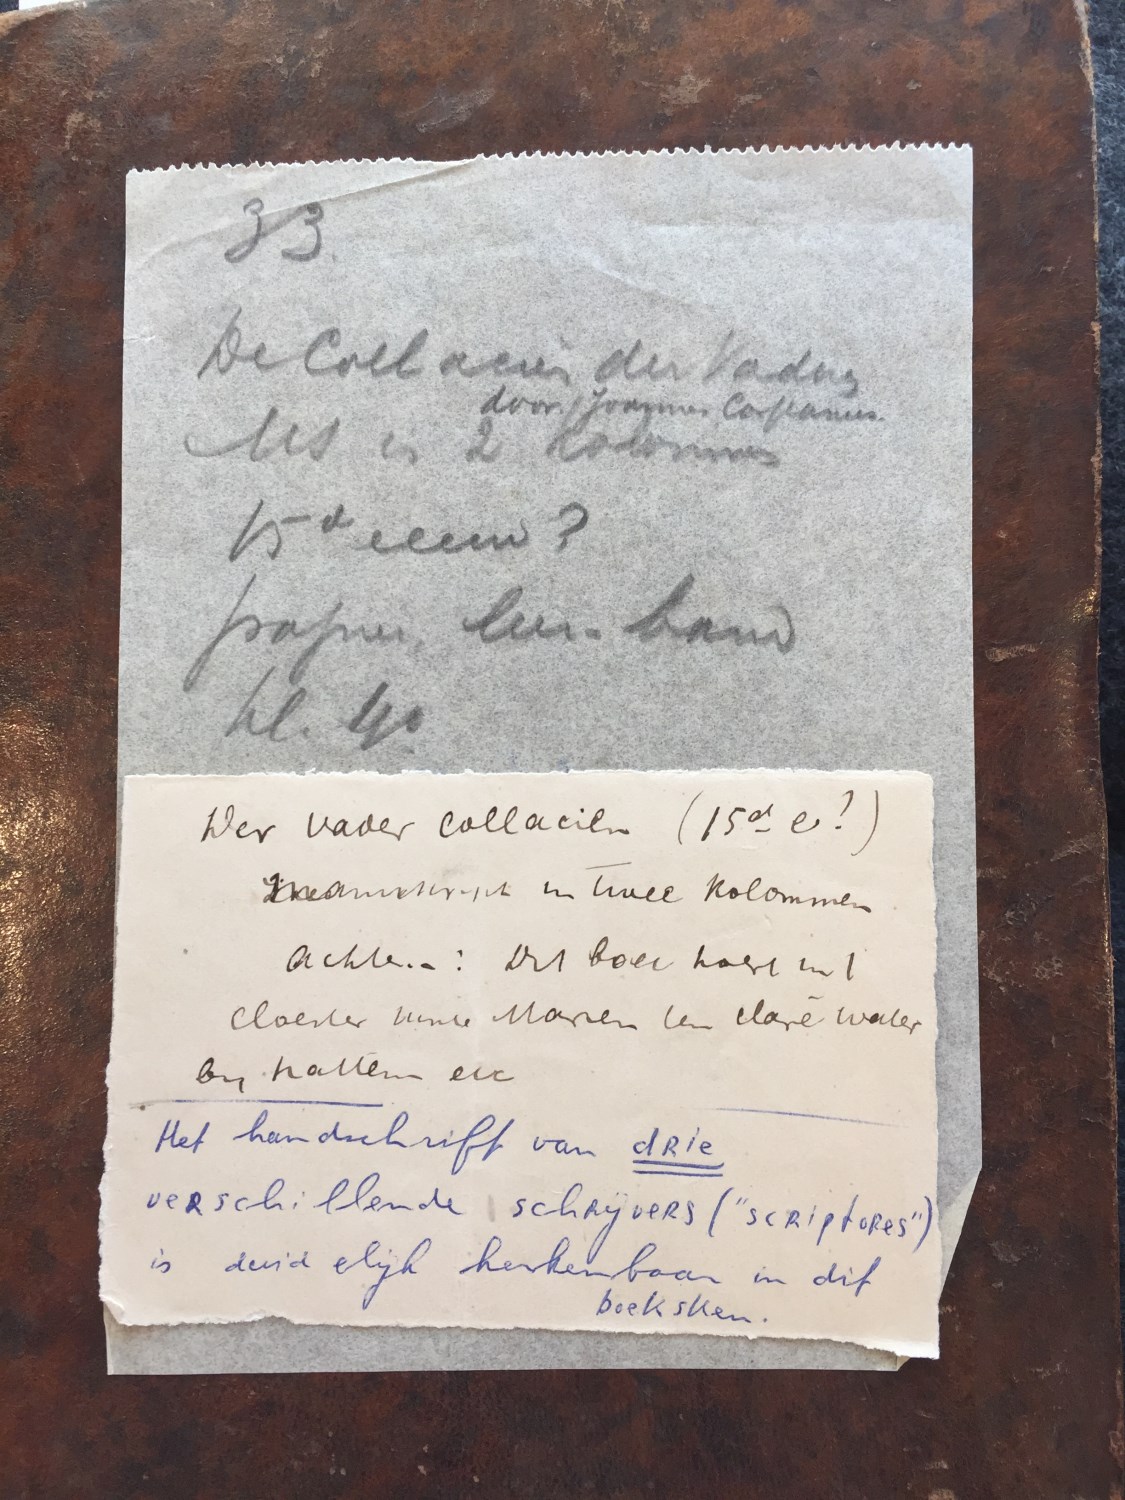 33.
De Collaciën der Vaders
door Joannes Cassianus.
MS in 2 kolommen
15d eeuw?
papier, leer. band
kl. 4o.
Der vader collacien (15d e?)
manuschript in twee kolommen
achter..: Dit boec hoert int
cloester sunte Marien ten clarē water
by hattem etc
Het handschrift van drie
verschillende schrijvers ("scriptores")
is duidelijk herkenbaar in dit
boeksken.